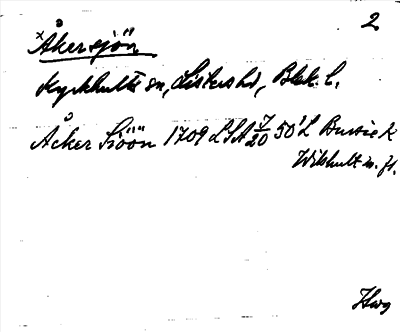 2
ˣÅkersjön
Kyrkhults sn, Listers hd, Blek. l.
Åcker Siöön 1709 LSA J/20 50¹ L Bussie k
Wilshult m. fl.
Hwg